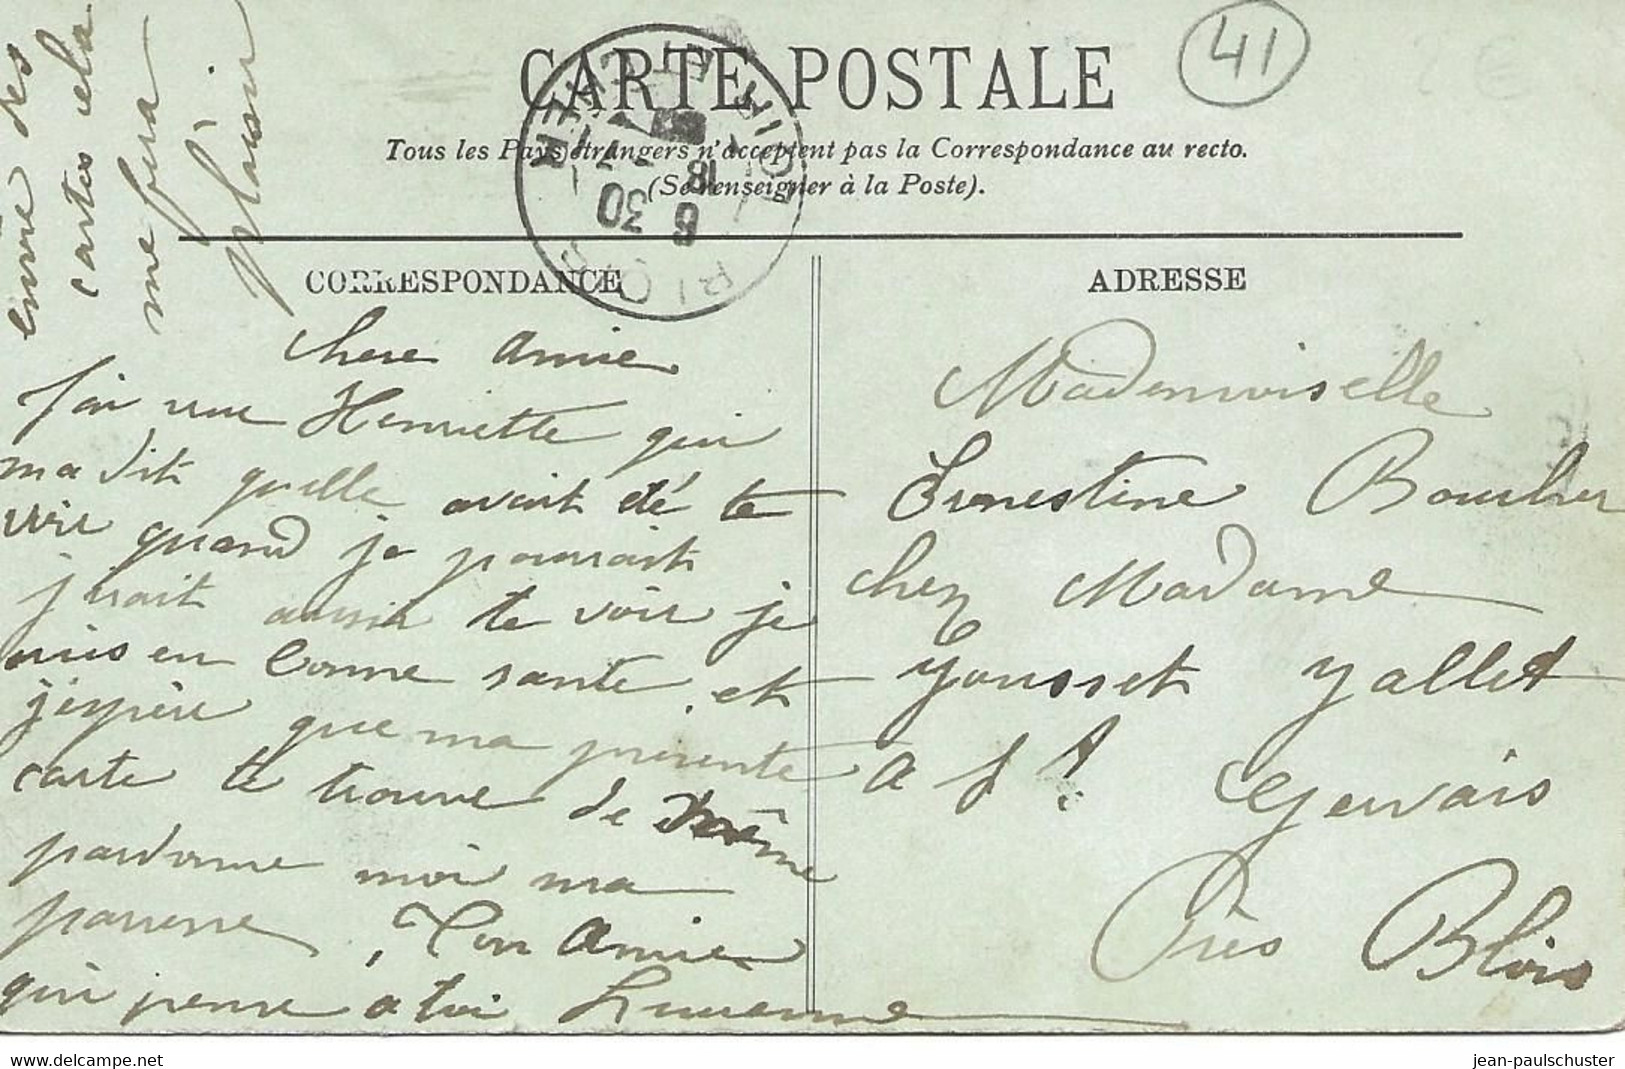 41
CARTE POSTALE
Tous les Pays étrangers n'acceptent pas la Correspondance au recto.
(Se renseigner à la Poste).
6
18
30
CORRESPONDANCE
ADRESSE
chere amie
J'ai vue Henriette qui
ma dit quelle avait été te
voir quand je pourrait
j'irait aussi te voir je
suis en bonne santé et
j'espère que ma présente
carte te trouve de même
pardonne moi ma
, Ton amie
qui pense a toi
envoie des
cartes cela
me fera
plaisir
Mademoiselle
Ernestine Boucher
chez Madame
Yousset Yallet
a St Gervais
Près Blois
delcampe.net
jean-paulschuster